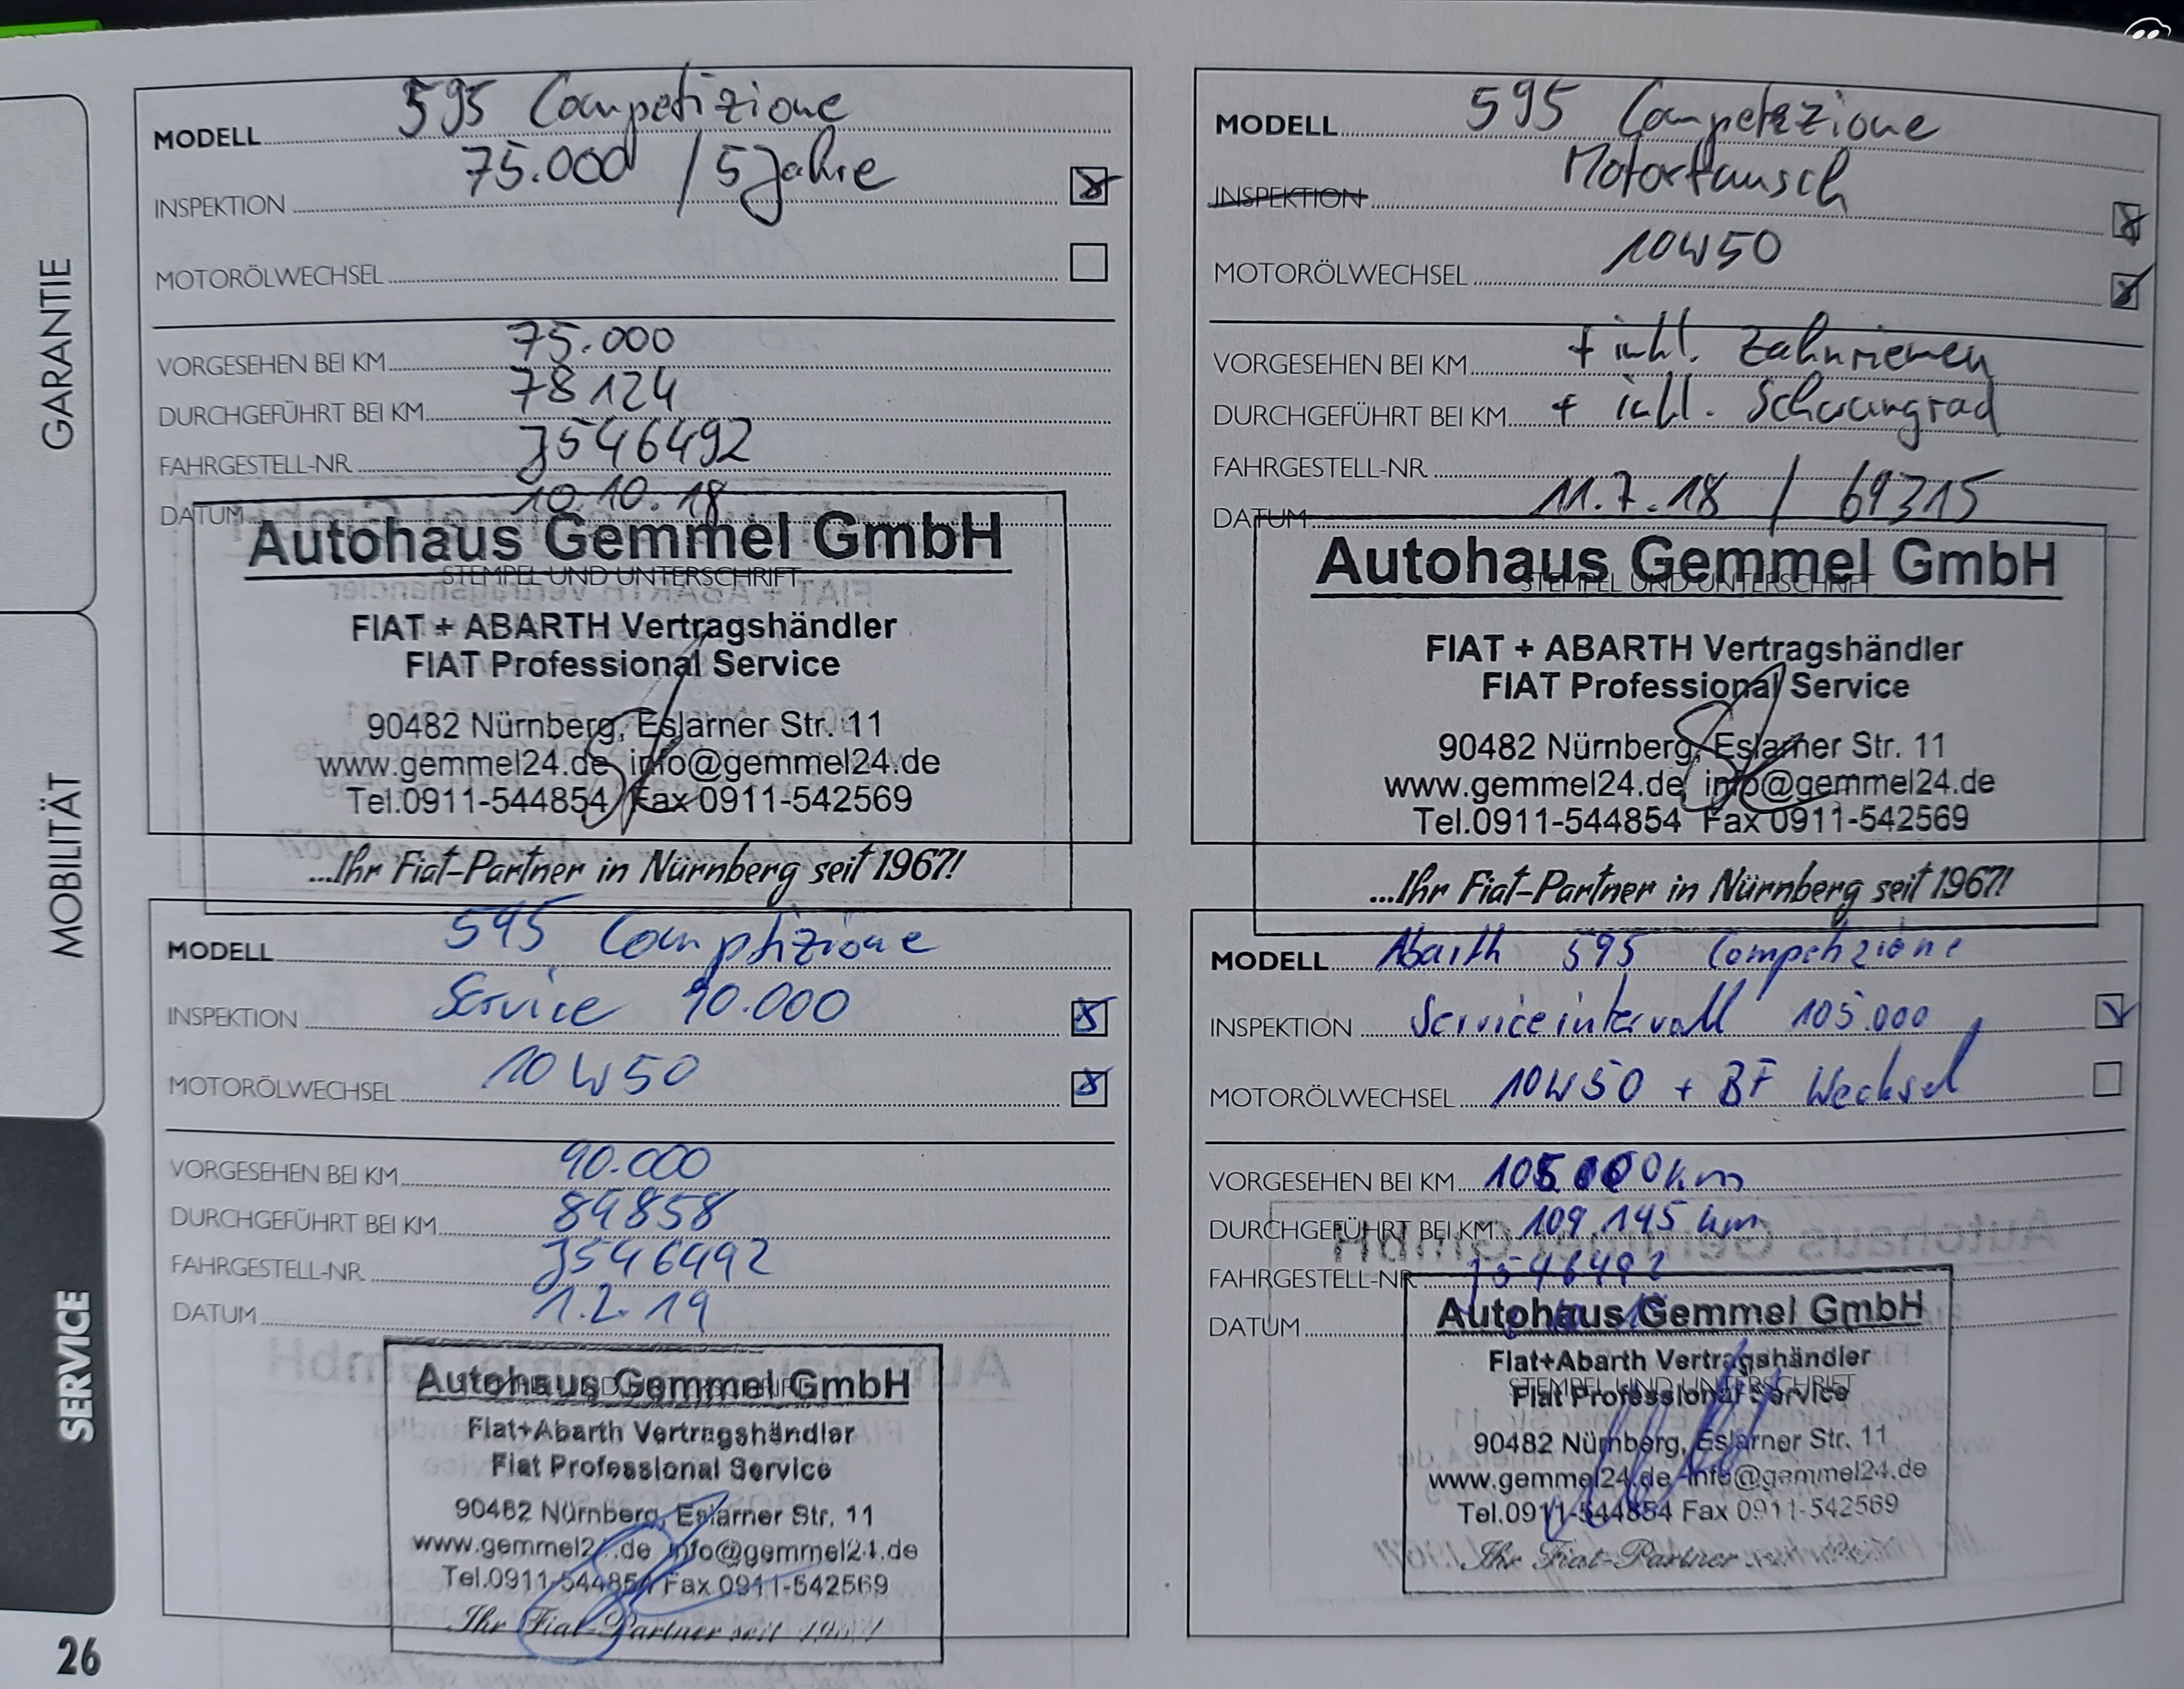 GARANTIE
MOBILITÄT
SERVICE
26
MODELL 595 Competizione
INSPEKTION 75.000 / 5 Jahre
MOTORÖLWECHSEL
VORGESEHEN BEI KM 75.000
DURCHGEFÜHRT BEI KM 78124
FAHRGESTELL-NR J546492
DATUM 10.10.18
STEMPEL UND UNTERSCHRIFT
Autohaus Gemmel GmbH
FIAT + ABARTH Vertragshändler
FIAT Professional Service
90482 Nürnberg, Eslarner Str. 11
www.gemmel24.de info@gemmel24.de
Tel.0911-544854 Fax 0911-542569
...Ihr Fiat-Partner in Nürnberg seit 1967!
MODELL 595 Competizione
INSPEKTION Motortausch
MOTORÖLWECHSEL 10W50
VORGESEHEN BEI KM + inkl. Zahnriemen
DURCHGEFÜHRT BEI KM + inkl. Schwungrad
FAHRGESTELL-NR
DATUM 11.7.18 / 69315
STEMPEL UND UNTERSCHRIFT
Autohaus Gemmel GmbH
FIAT + ABARTH Vertragshändler
FIAT Professional Service
90482 Nürnberg, Eslarner Str. 11
www.gemmel24.de info@gemmel24.de
Tel.0911-544854 Fax 0911-542569
...Ihr Fiat-Partner in Nürnberg seit 1967!
MODELL 595 Comptizione
INSPEKTION Service 90.000
MOTORÖLWECHSEL 10W50
VORGESEHEN BEI KM 90.000
DURCHGEFÜHRT BEI KM 89858
FAHRGESTELL-NR J546492
DATUM 1.2.19
Autohaus Gemmel GmbH
Fiat+Abarth Vertragshändler
Fiat Professional Service
90482 Nürnberg, Eslarner Str. 11
www.gemmel24.de info@gemmel24.de
Tel.0911-544854 Fax 0911-542569
Ihr Fiat-Partner seit
MODELL Abarth 595 Competizione
INSPEKTION Serviceintervall 105.000
MOTORÖLWECHSEL 10W50 + BF Wechsel
VORGESEHEN BEI KM 105000km
DURCHGEFÜHRT BEI KM 109.145 km
FAHRGESTELL-NR J546492
DATUM
STEMPEL UND UNTERSCHRIFT
Autohaus Gemmel GmbH
Fiat+Abarth Vertragshändler
Fiat Professional Service
90482 Nürnberg, Eslarner Str. 11
www.gemmel24.de info@gemmel24.de
Tel.0911-544854 Fax 0911-542569
Ihr Fiat-Partner seit